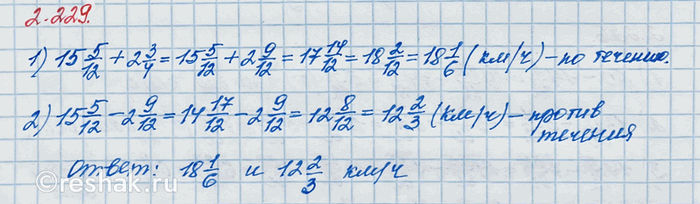 2.229.
1) 15 5/12 + 2 3/4 = 15 5/12 + 2 9/12 = 17 14/12 = 18 2/12 = 18 1/6 (км/ч) – по течению.
2) 15 5/12 − 2 9/12 = 14 17/12 − 2 9/12 = 12 8/12 = 12 2/3 (км/ч) – против
течения
Ответ: 18 1/6 и 12 2/3 км/ч
©reshak.ru